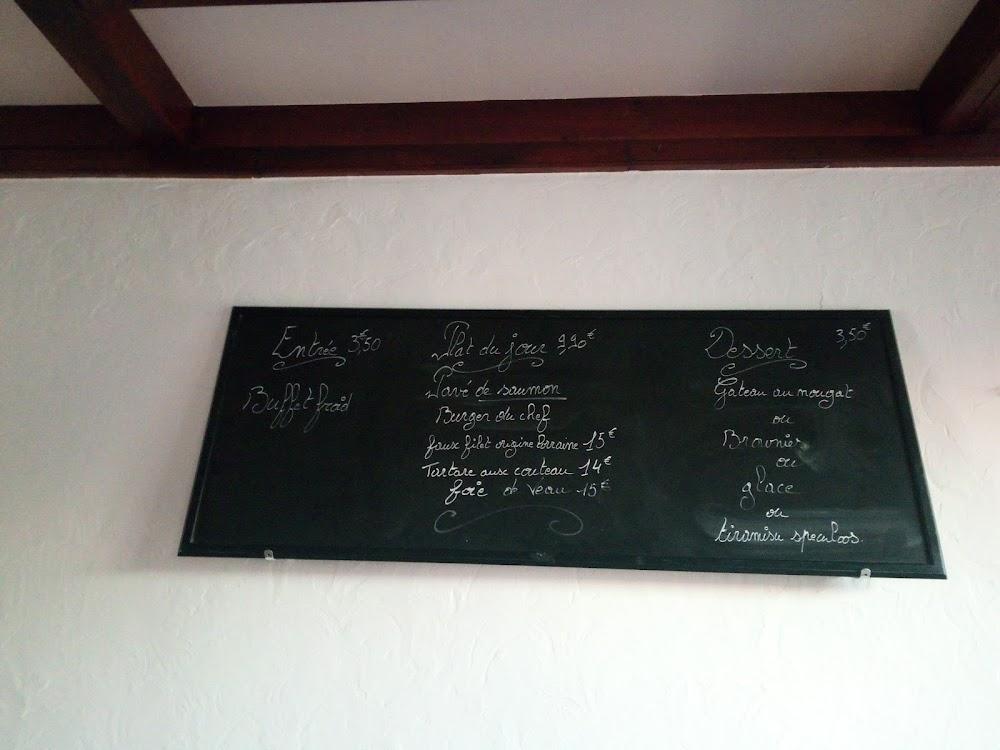 Entrée 3,50€
Buffet froid
Plat du jour 9,90€
Pavé de saumon
Burger du chef
faux filet origine Lorraine 15€
Tartare aux couteau 14€
foie de veau 15€
Dessert 3,50€
Gateau au nougat
ou
Brownies
ou
glace
ou
tiramisu speculoos